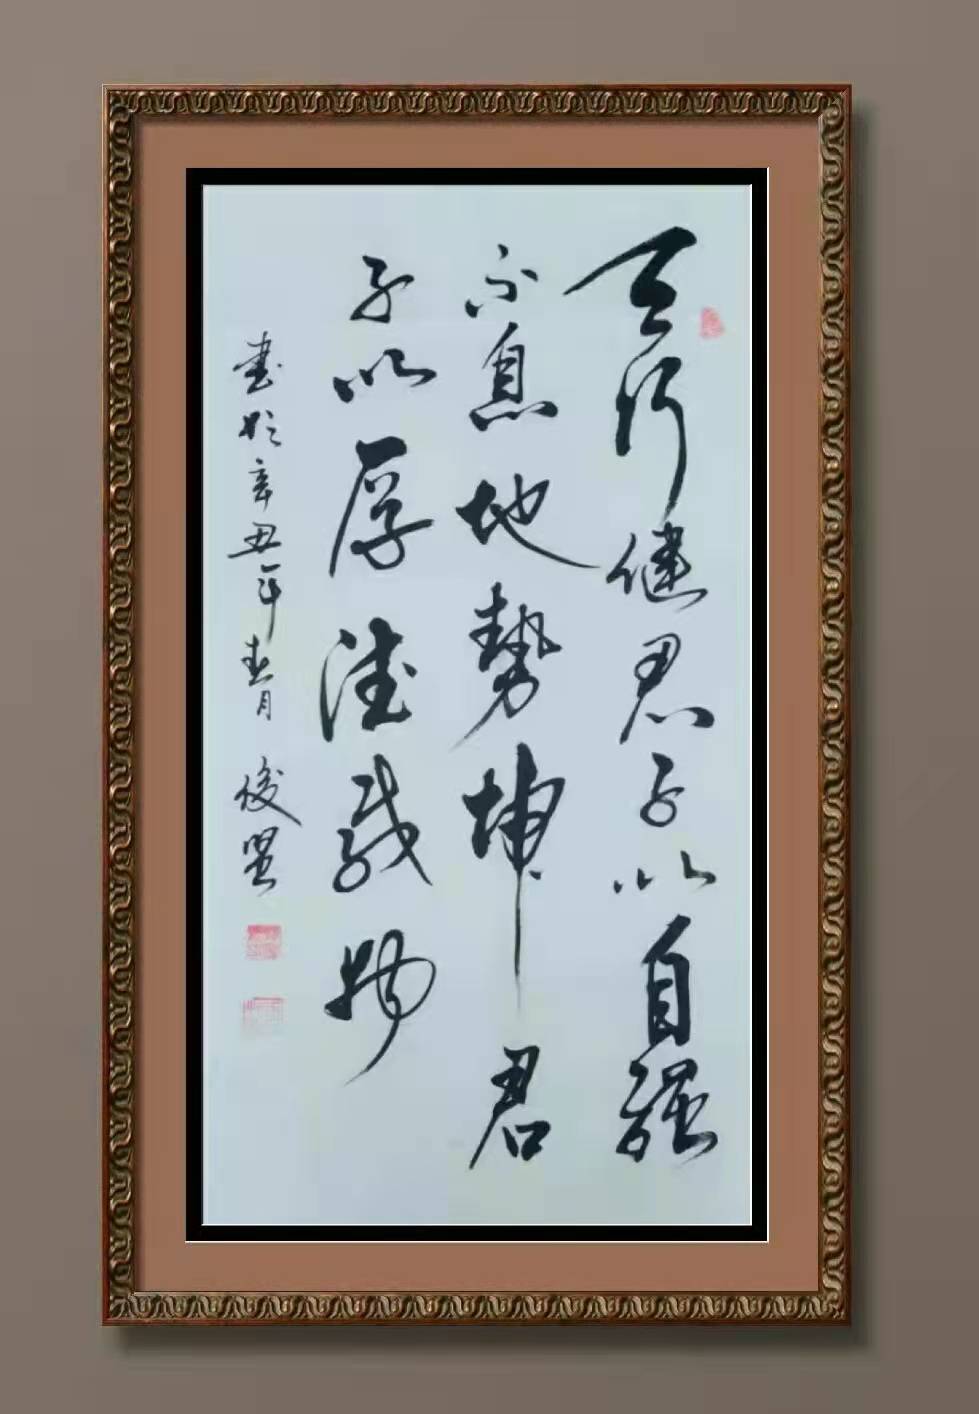 天行健君子以自强
不息地势坤君
子以厚德载物
书於辛丑年春月 俊坚